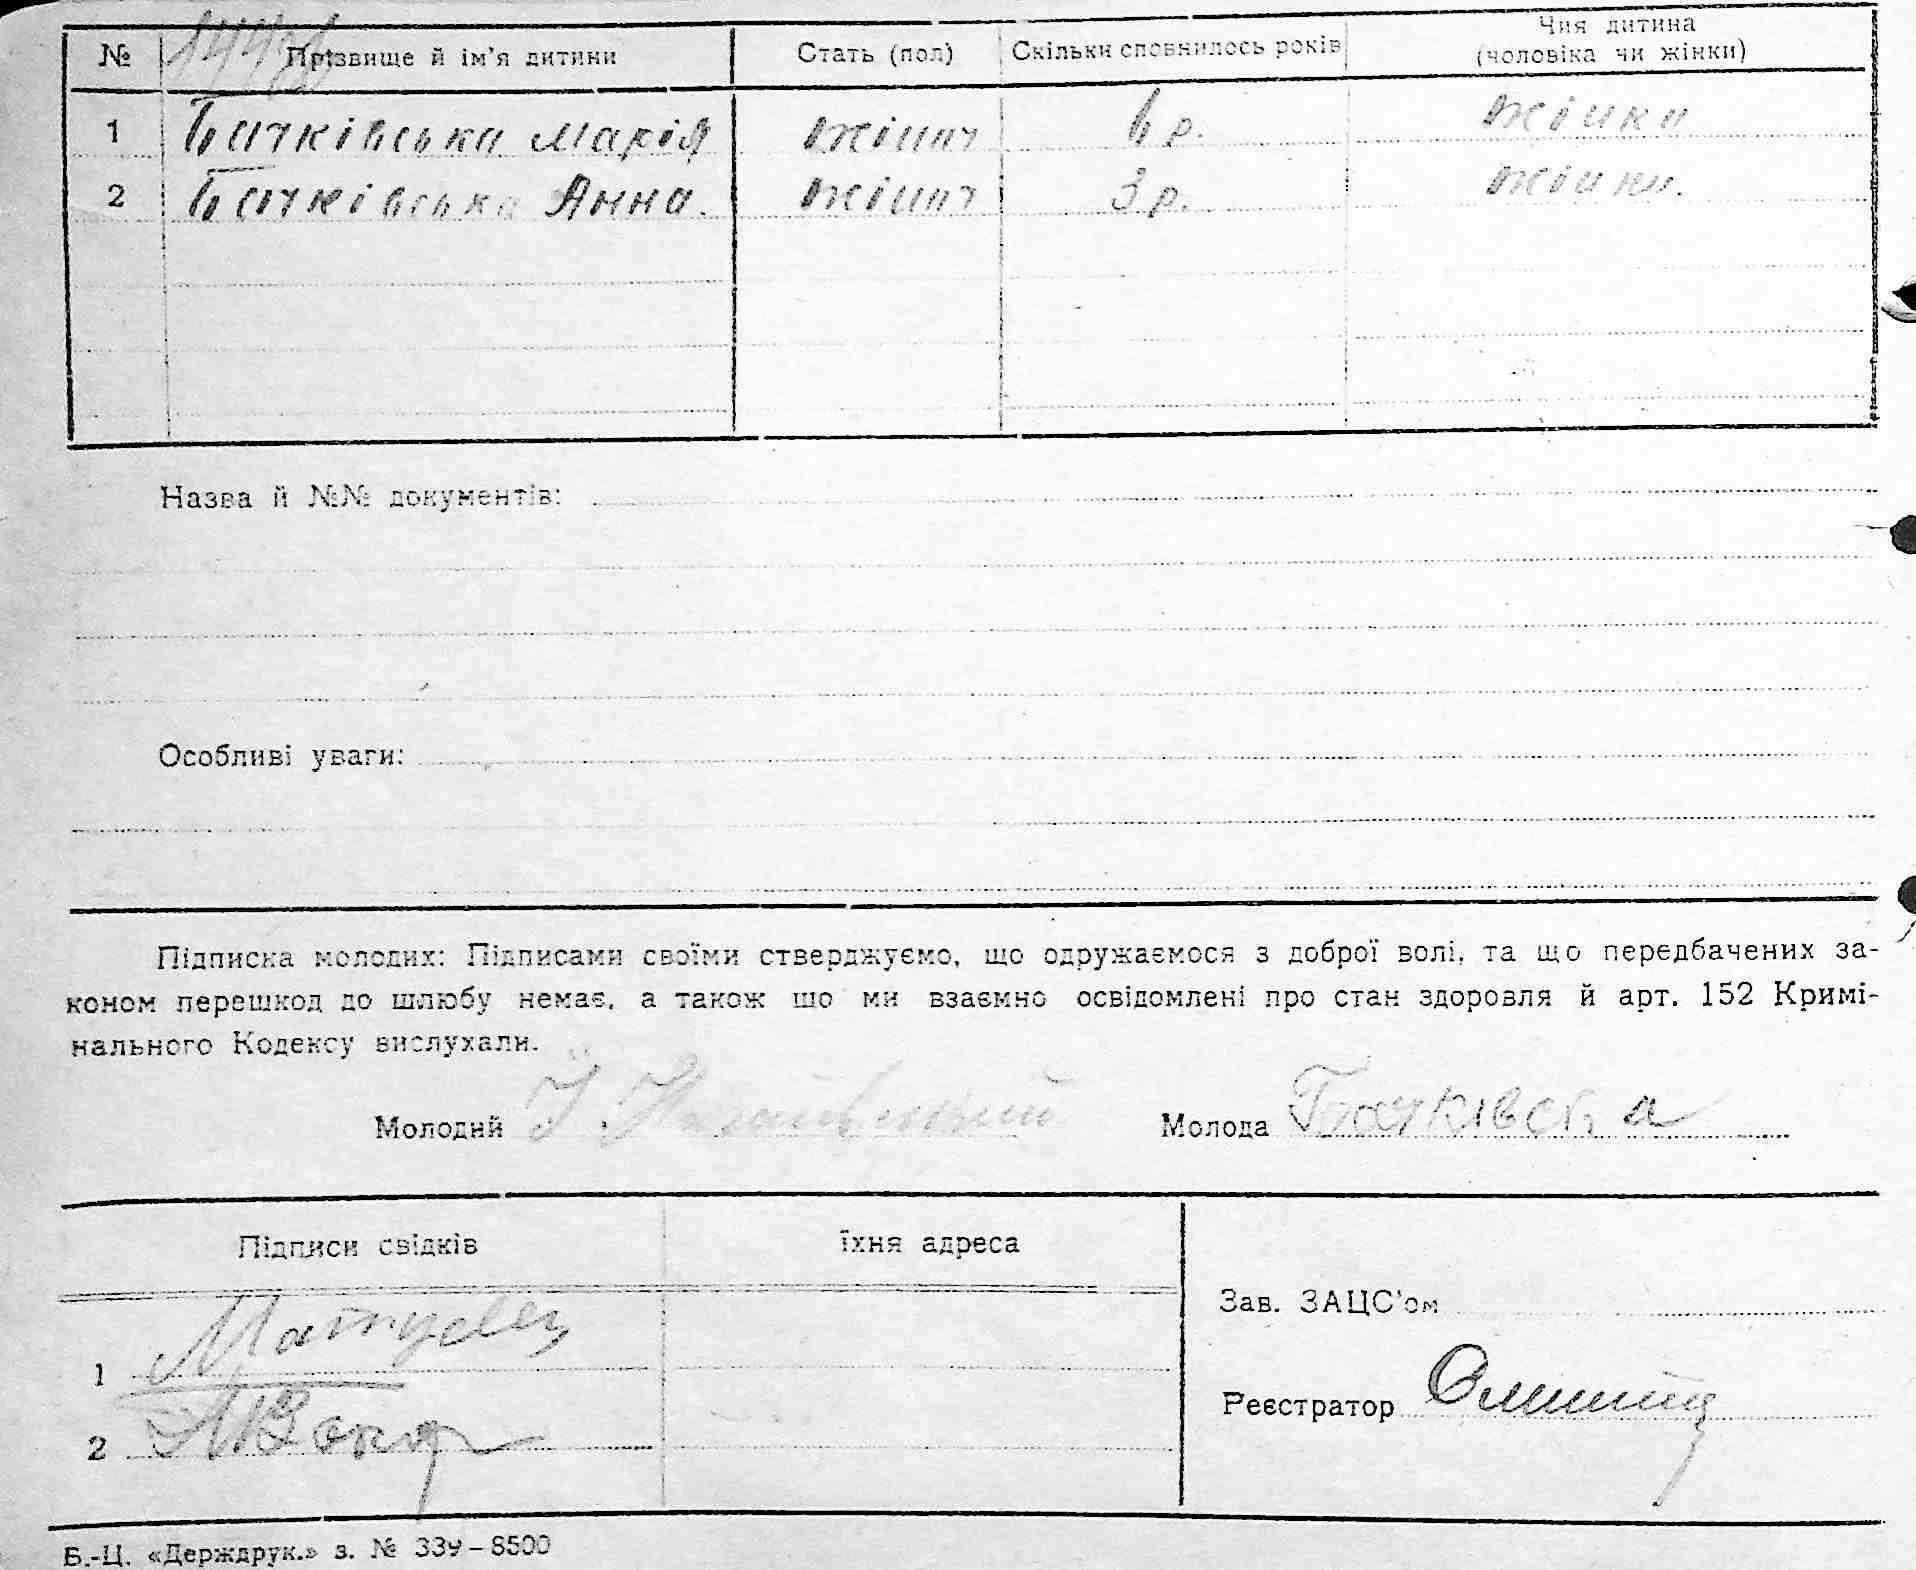 № Прізвище й ім'я дитини Стать (пол) Скільки сповнилось років Чия дитина
(чоловіка чи жінки)
1 Бачківська Марія жіноч 6 р. жінки
2 Бачківська Анна. жіноч 3 р. жінки.
Назва й №№ документів:
Особливі уваги:
Підписка молодих: Підписами своїми стверджуємо, що одружаємося з доброї волі, та що передбачених за-
коном перешкод до шлюбу немає, а також що ми взаємно освідомлені про стан здоровля й арт. 152 Кримі-
нального Кодексу вислухали.
Молодий Молода Бачківська
Підписи свідків Їхня адреса
Зав. ЗАЦС'ом
1
Реєстратор
2
Б.-Ц. «Держдрук.» з. № 339-8500